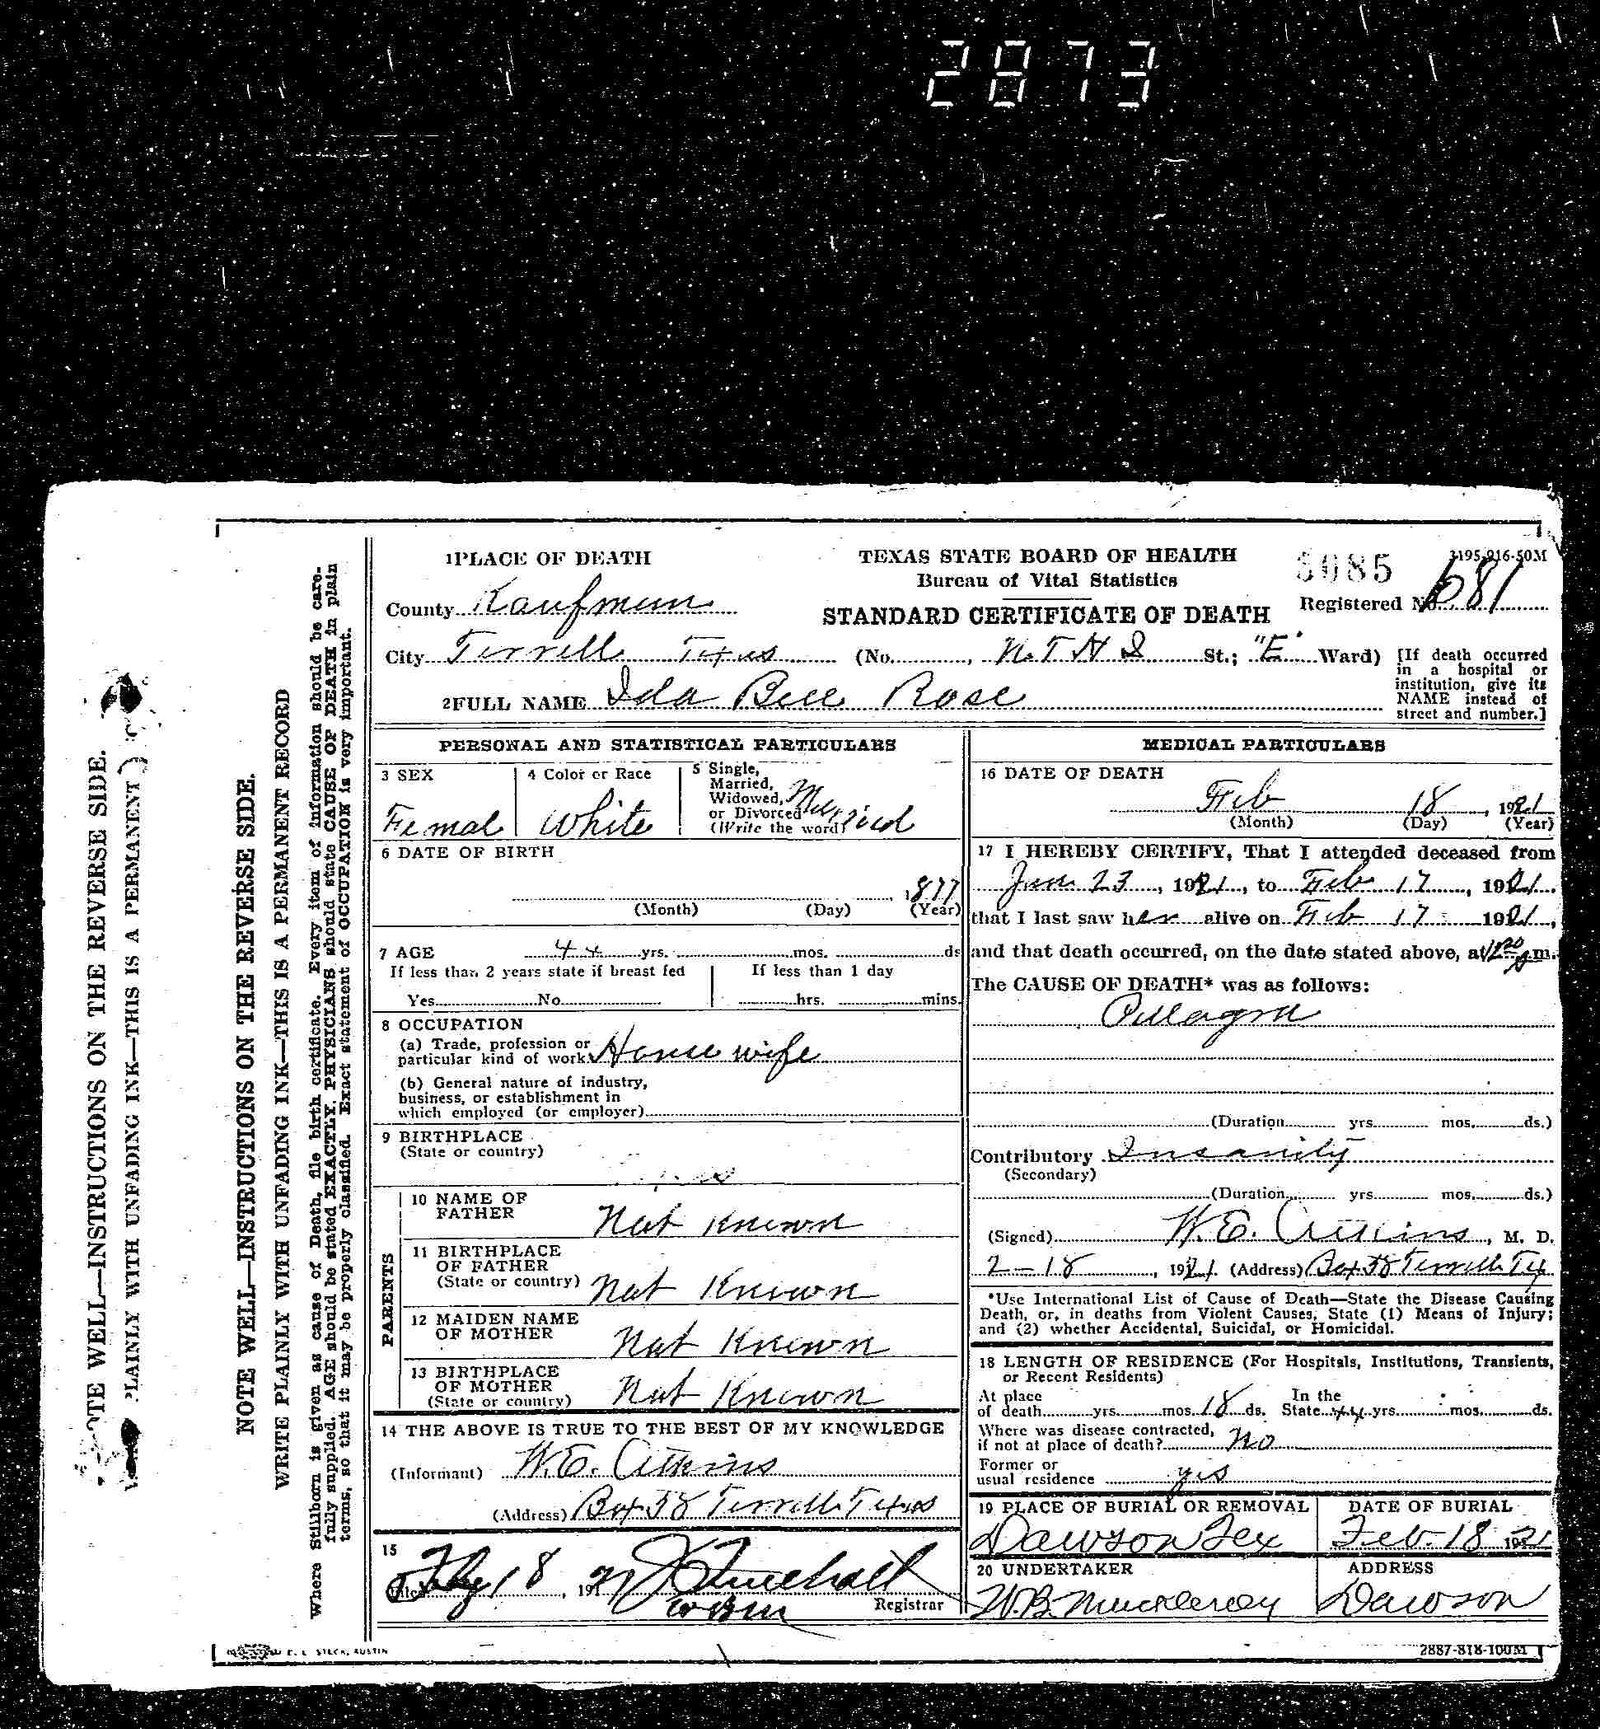 2873
1PLACE OF DEATH
County Kaufman
City Terrell Texas (No. , N.T.H.S St.; "E" Ward)
2FULL NAME Ida Bell Rose
TEXAS STATE BOARD OF HEALTH
Bureau of Vital Statistics
STANDARD CERTIFICATE OF DEATH
5085
3195-916-50M
Registered No. 681
[If death occurred
in a hospital or
institution, give its
NAME instead of
street and number.]
PERSONAL AND STATISTICAL PARTICULARS
3 SEX
Femal
4 Color or Race
White
5 Single,
Married,
Widowed,
or Divorced
(Write the word)
6 DATE OF BIRTH
, 1877
(Month) (Day) (Year)
7 AGE 44 yrs. mos. ds
If less than 2 years state if breast fed
Yes No
If less than 1 day
hrs. mins.
8 OCCUPATION
(a) Trade, profession or
particular kind of work House wife
(b) General nature of industry,
business, or establishment in
which employed (or employer)
9 BIRTHPLACE
(State or country)
PARENTS
10 NAME OF
FATHER Not Known
11 BIRTHPLACE
OF FATHER
(State or country) Not Known
12 MAIDEN NAME
OF MOTHER Not Known
13 BIRTHPLACE
OF MOTHER
(State or country) Not Known
14 THE ABOVE IS TRUE TO THE BEST OF MY KNOWLEDGE
(Informant) W.E. Atkins
(Address) Box 58 Terrell Texas
15
18, 1921
Registrar
MEDICAL PARTICULARS
16 DATE OF DEATH
Feb 18, 1921
(Month) (Day) (Year)
17 I HEREBY CERTIFY, That I attended deceased from
Jan 23, 1921, to Feb 17, 1921.
that I last saw her alive on Feb 17 1921,
and that death occurred, on the date stated above, at m.
The CAUSE OF DEATH* was as follows:
Pellagra
(Duration yrs. mos. ds.)
Contributory Insanity
(Secondary)
(Duration yrs. mos. ds.)
(Signed) W.E. Atkins, M. D.
2-18, 1921 (Address) Box 58 Terrell Tex
*Use International List of Cause of Death—State the Disease Causing
Death, or, in deaths from Violent Causes, State (1) Means of Injury;
and (2) whether Accidental, Suicidal, or Homicidal.
18 LENGTH OF RESIDENCE (For Hospitals, Institutions, Transients,
or Recent Residents)
At place
of death yrs. mos. 18 ds.
In the
State 44 yrs. mos. ds.
Where was disease contracted,
if not at place of death? no
Former or
usual residence yes
19 PLACE OF BURIAL OR REMOVAL
Dawson Tex
DATE OF BURIAL
Feb. 18 1921
20 UNDERTAKER
W.B.
ADDRESS
Dawson
E. L. STECK, AUSTIN
2887-818-100M
NOTE WELL—INSTRUCTIONS ON THE REVERSE SIDE.
WRITE PLAINLY WITH UNFADING INK—THIS IS A PERMANENT RECORD
Where Stillborn is given as cause of Death, file birth certificate. Every item of information should be care-
fully supplied. AGE should be stated EXACTLY. PHYSICIANS should state CAUSE OF DEATH in plain
terms, so that it may be properly classified. Exact statement of OCCUPATION is very important.
OTE WELL—INSTRUCTIONS ON THE REVERSE SIDE.
PLAINLY WITH UNFADING INK—THIS IS A PERMANENT